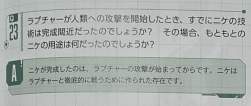 Q
23
ラプチャーが人類への攻撃を開始したとき、すでにニケの技
術は完成間近だったのでしょうか？ その場合、もともとの
ニケの用途は何だったのでしょうか？
A
ニケが完成したのは、ラプチャーの攻撃が始まってからです。ニケは
ラプチャーと徹底的に戦うために作られた存在です。